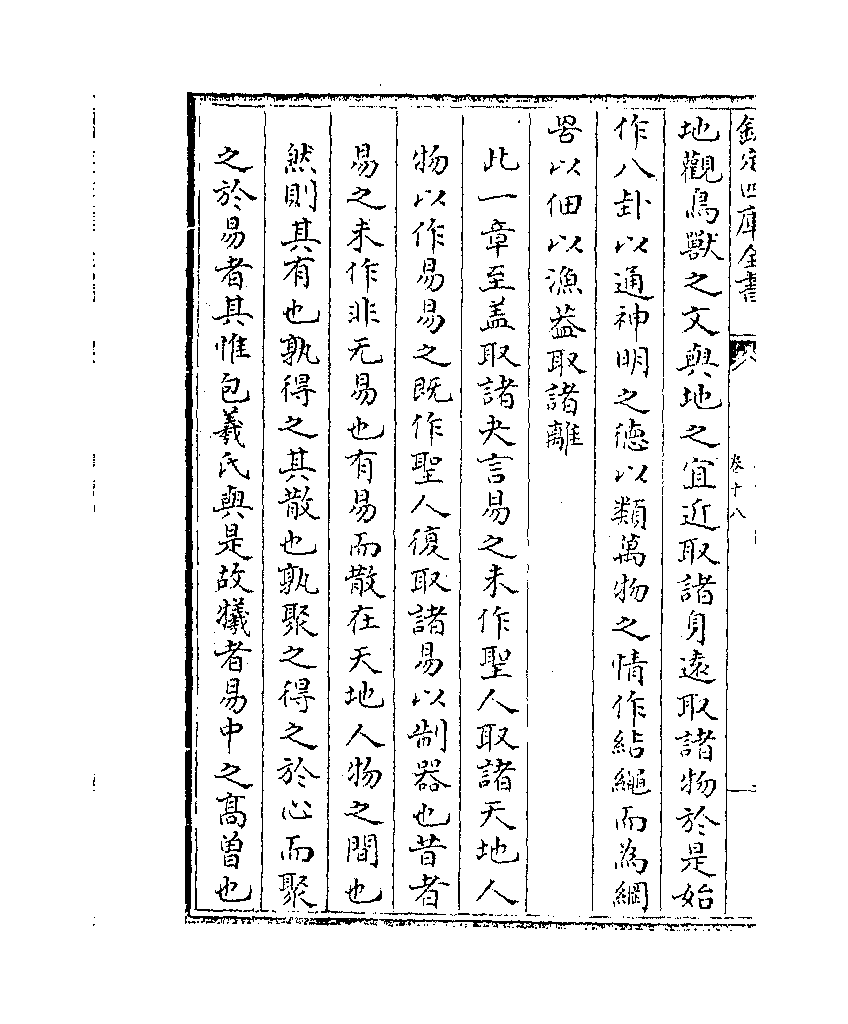 欽定四庫全書
卷十八
地觀鳥獸之文與地之宜近取諸身遠取諸物於是始
作八卦以通神明之德以類萬物之情作結繩而為網
罟以佃以漁葢取諸離
此一章至盖取諸夬言易之未作聖人取諸天地人
物以作易易之既作聖人復取諸易以制器也昔者
易之未作非无易也有易而散在天地人物之間也
然則其有也孰得之其散也孰聚之得之於心而聚
之於易者其惟包羲氏與是故犧者易中之髙曽也